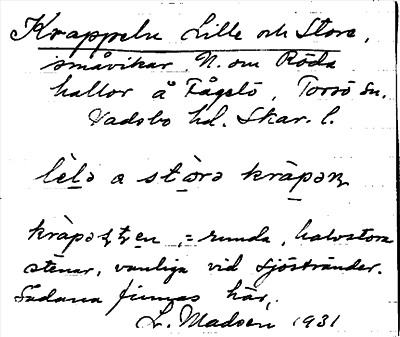 Krappeln Lille och Store,
småvikar N. om Röda
hallor å Fågelö, Torsö sn.
Vadsbo hd. Skar. l.
lèlə a stàrə kràpəɳ
kràpəʈʈen, = runda, halvstora
stenar, vanliga vid sjöstränder.
Sådana finnas här.
L. Madsén 1931